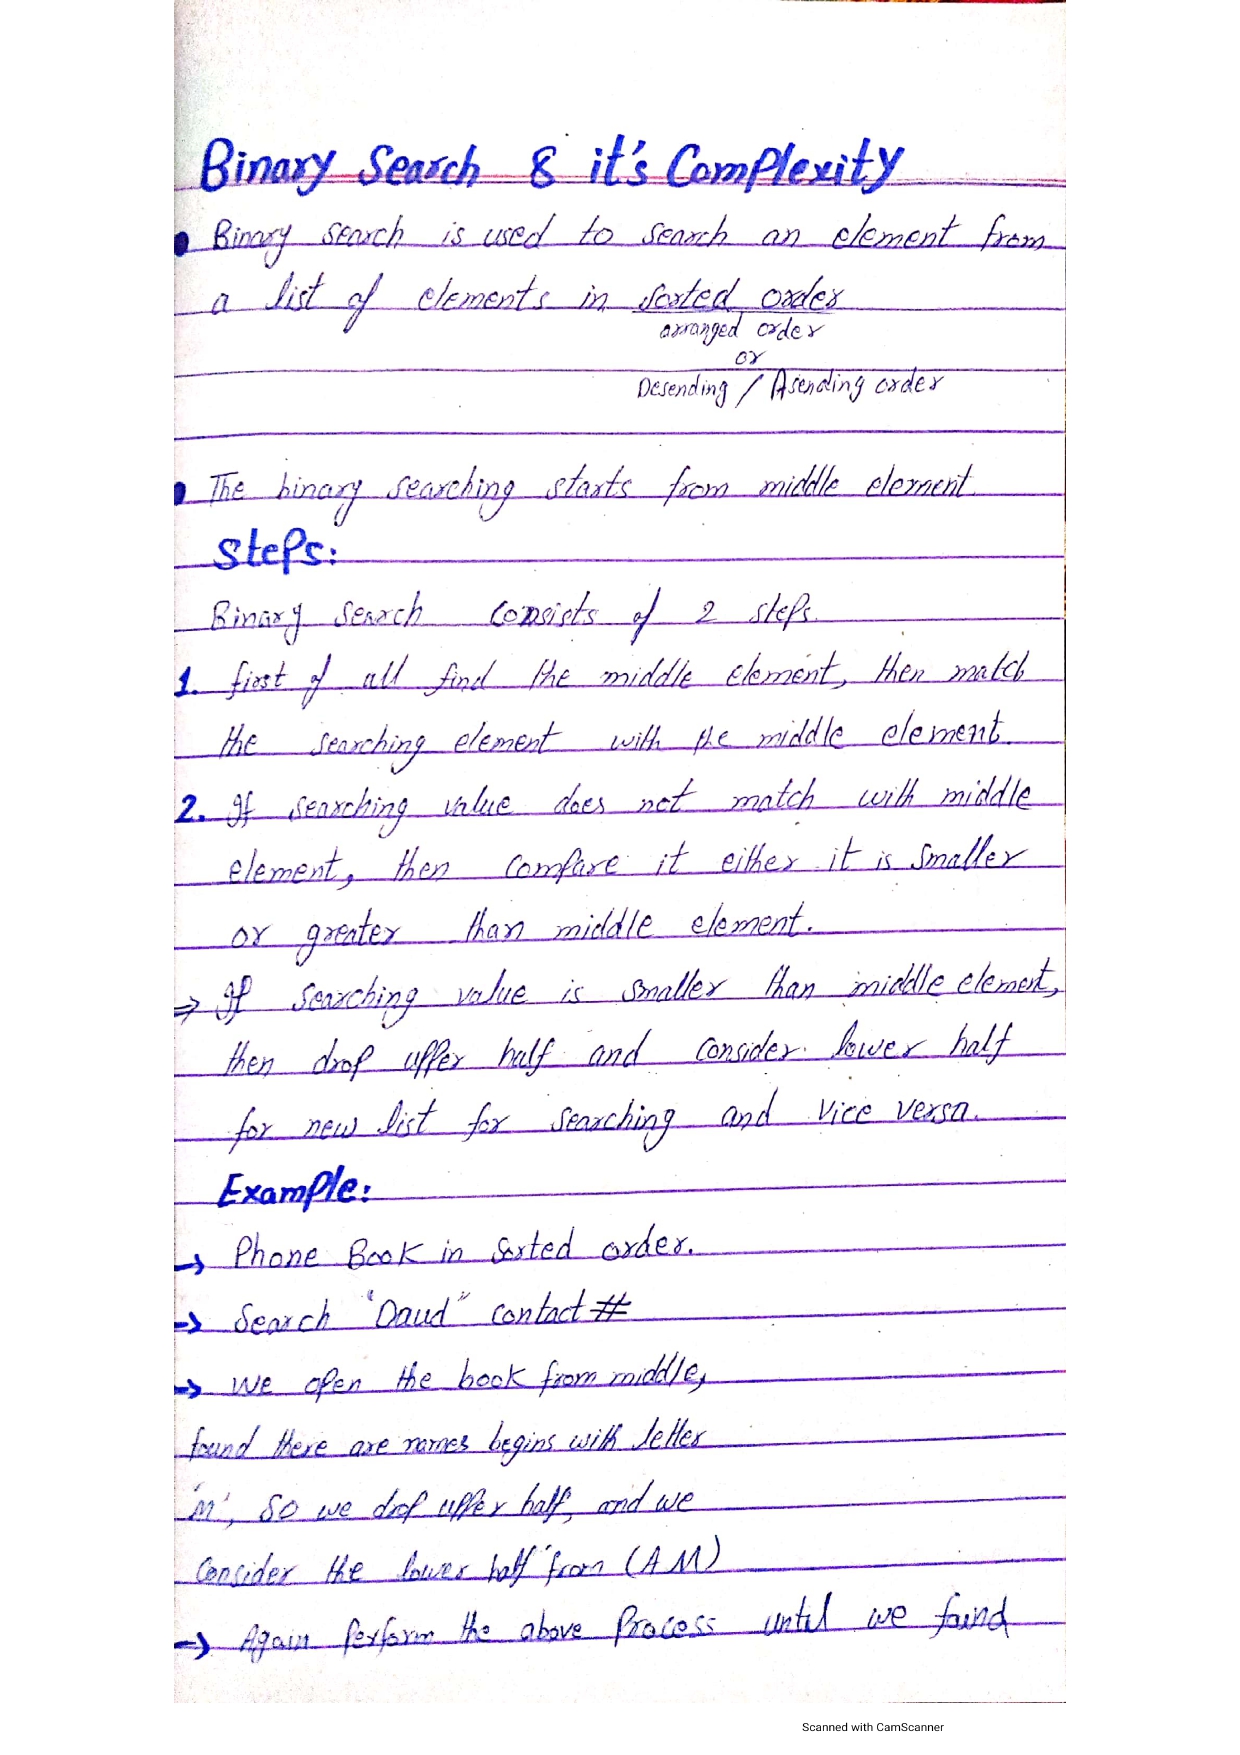 Binary Search & it's Complexity
Binary search is used to search an element from
a list of elements in sorted order
arranged order
or
Desending / Asending order
The binary searching starts from middle element
Steps:
Binary search consists of 2 steps.
1. first of all find the middle element, then match
the searching element with the middle element.
2. If searching value does not match with middle
element, then compare it either it is smaller
or greater than middle element.
⇒ If searching value is smaller than middle element,
then drop upper half and consider lower half
for new list for searching and vice versa.
Example:
→ Phone Book in sorted order.
→ Search "Daud" contact #
→ we open the book from middle,
found there are names begins with letter
'm', so we drop upper half, and we
Consider the lower half from (AM)
→ Again perform the above Process until we found
Scanned with CamScanner